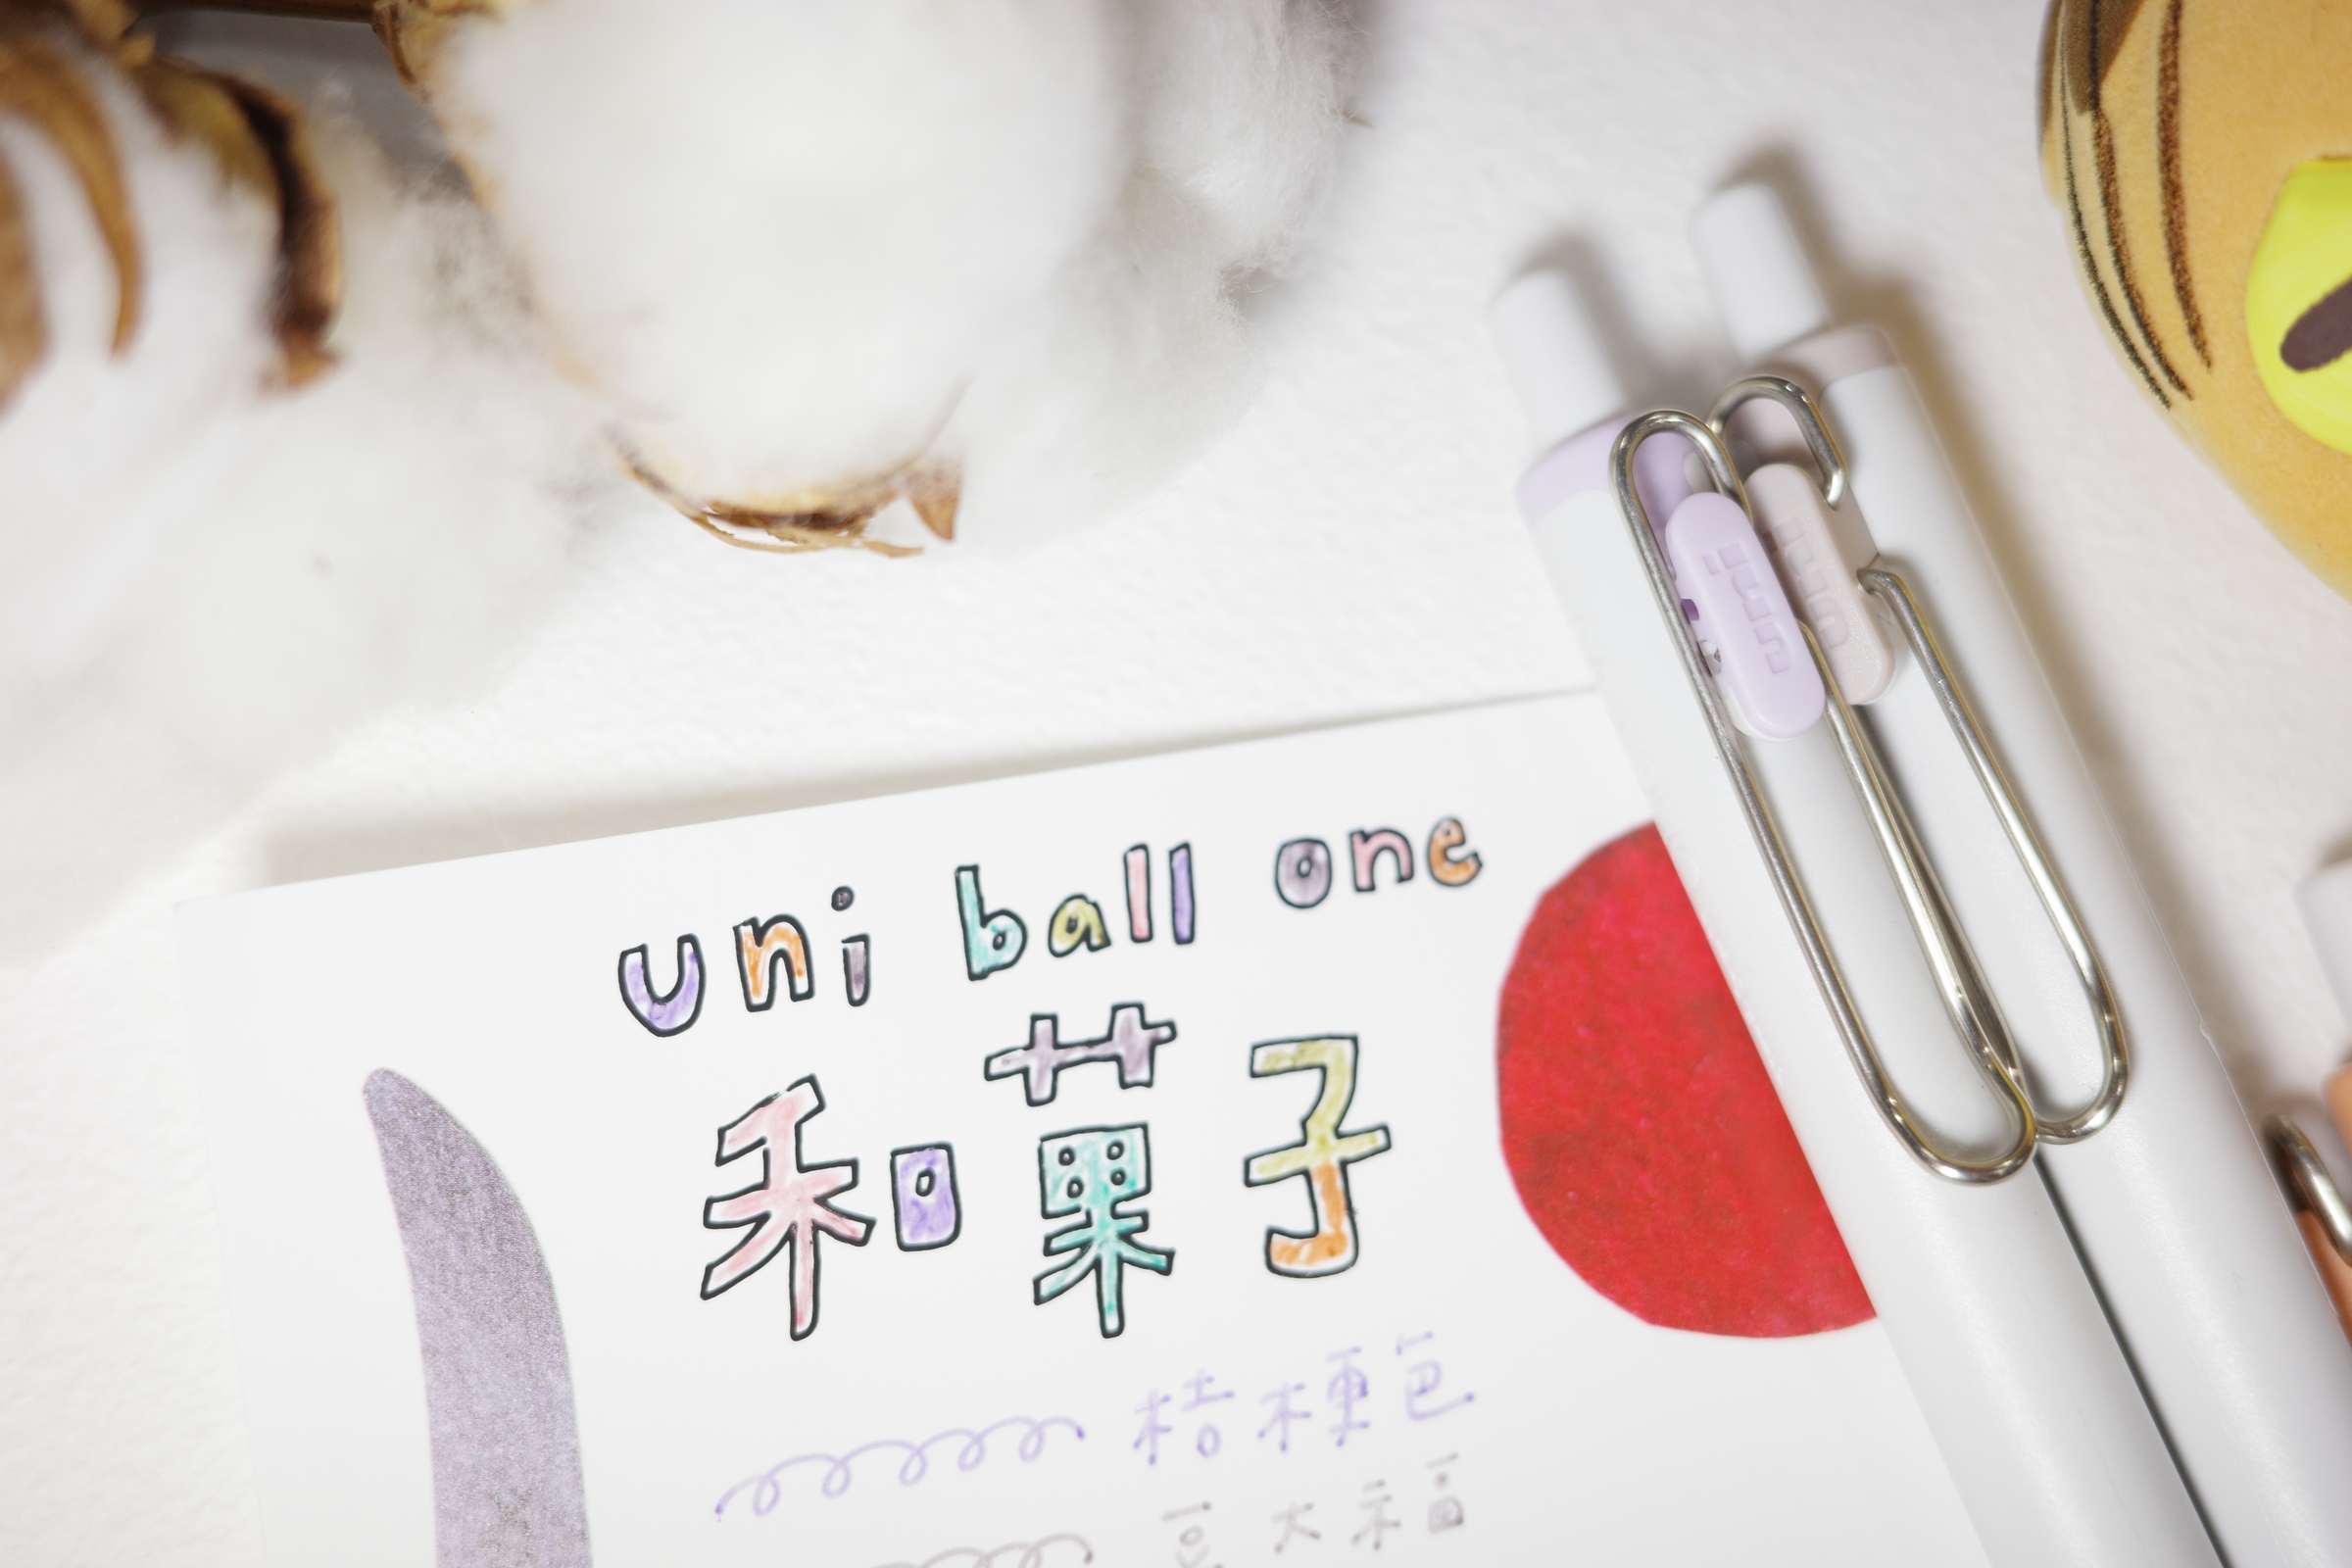 uni
uni
uni ball one
和菓子
桔梗色
豆大福